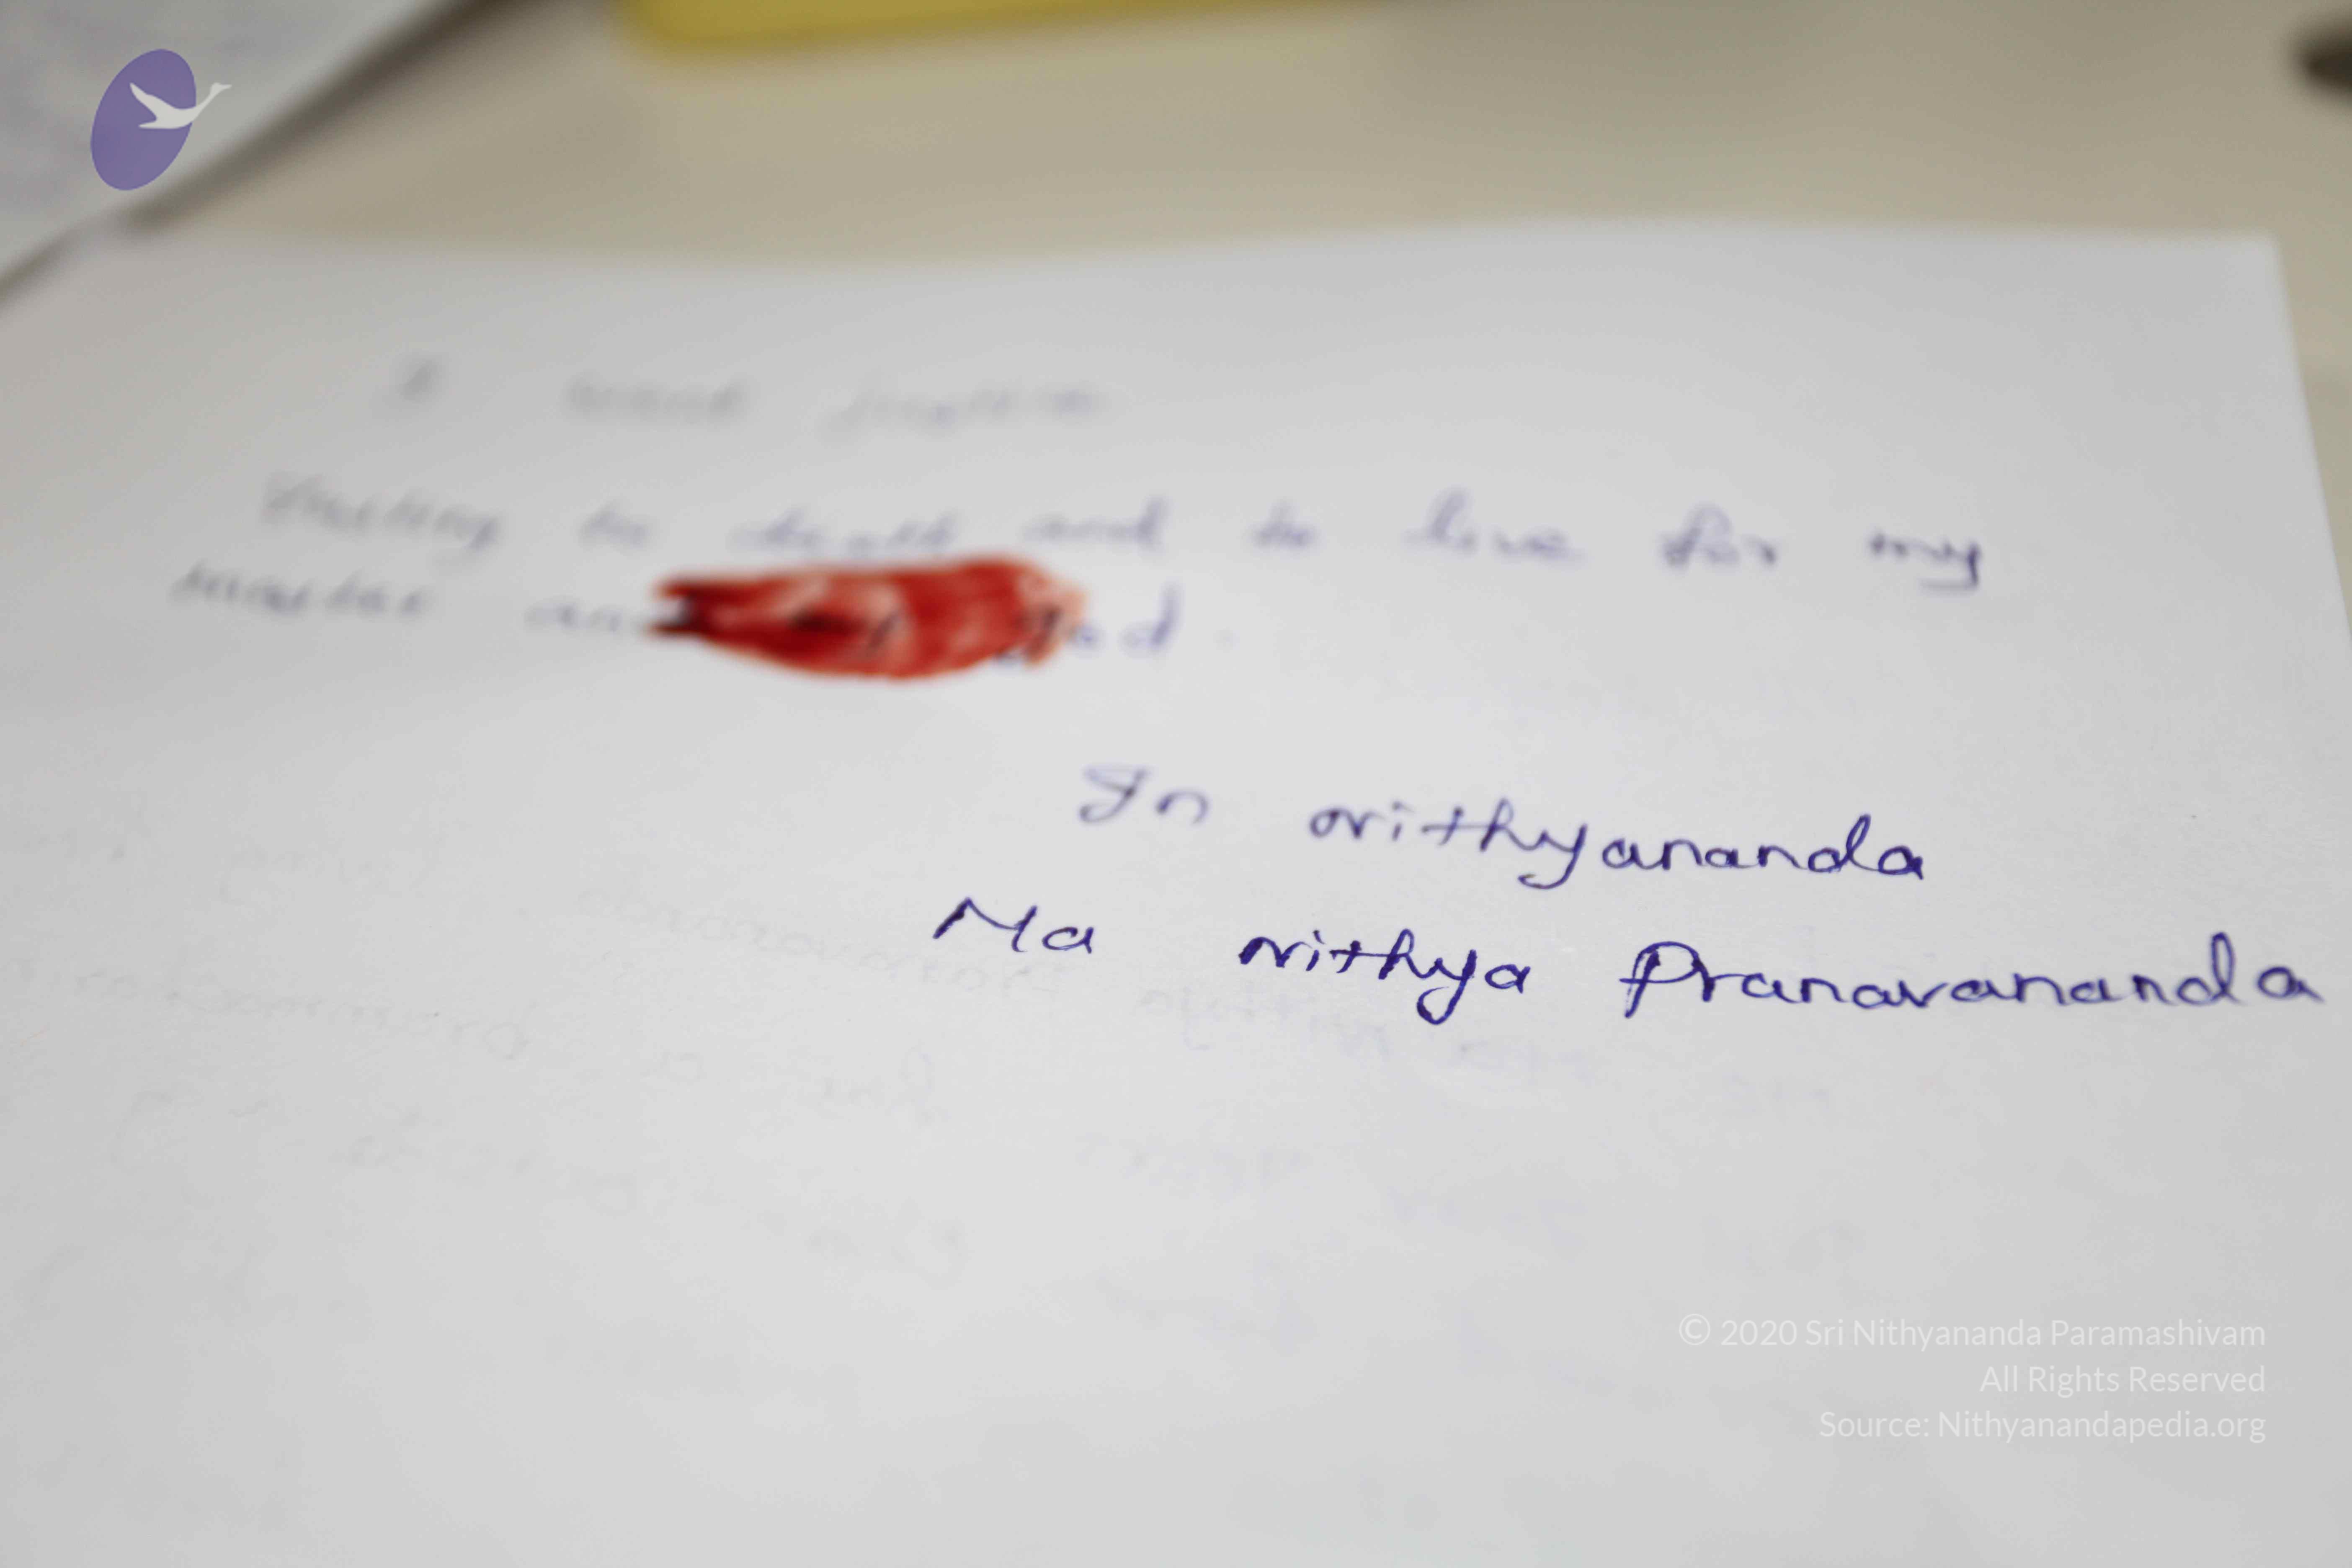 I want justice
Fasting to death and to live for my
master and my god.
In nithyananda
Ma nithya Pranavananda
© 2020 Sri Nithyananda Paramashivam
All Rights Reserved
Source: Nithyanandapedia.org